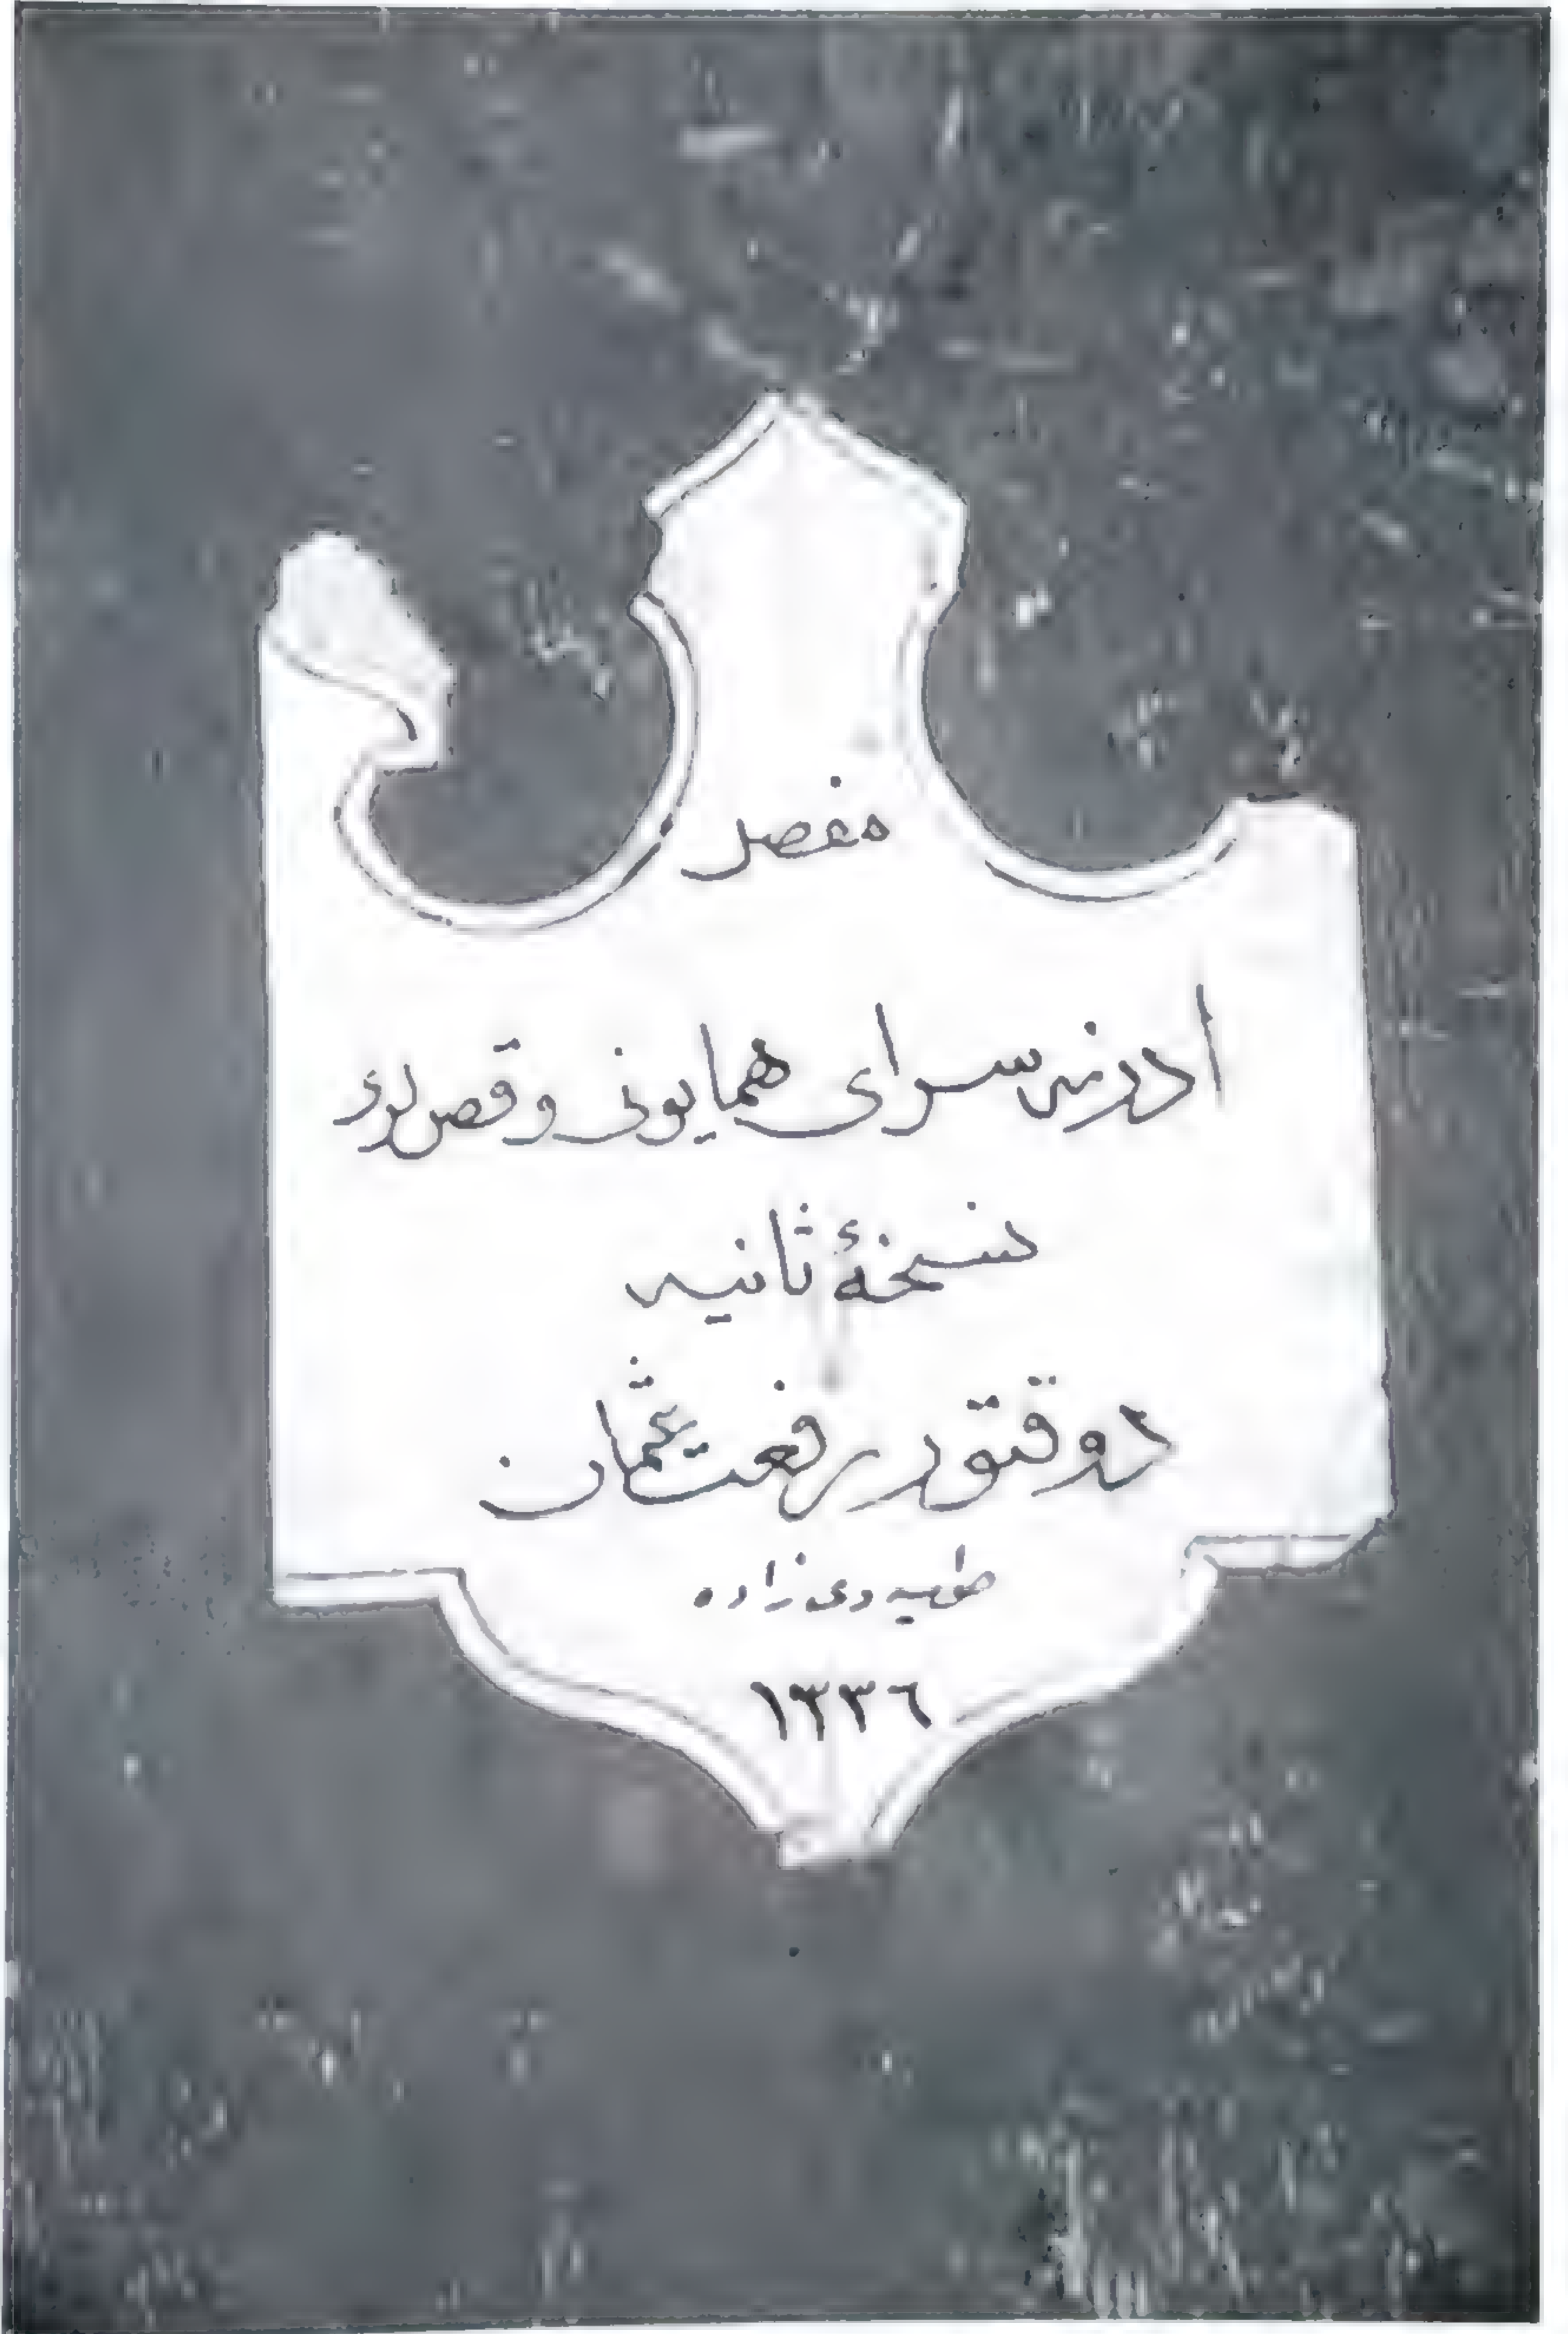 مفصل
ادرنه سرای همایونی و قصرلری
نسخهٔ ثانیه
دوقتور رفعت عثمان
طوسیه وی زاده
١٣٣٦